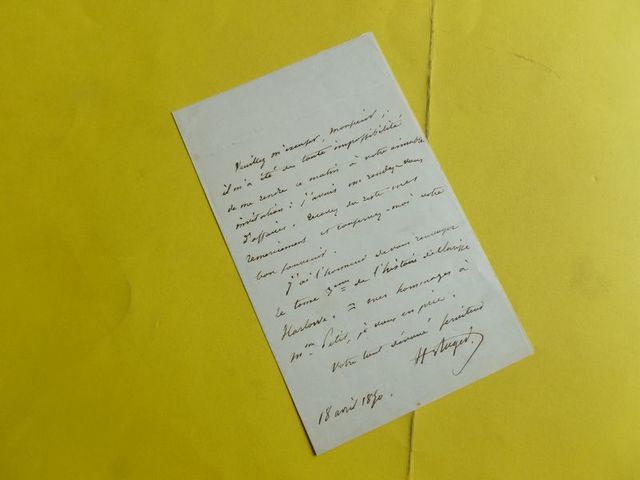 Veuillez m'excuser, monsieur,
il m'a été de toute impossibilité
de me rendre ce matin à votre aimable
invitation : j'avais un rendez-vous
d'affaires. Recevez du reste mes
remerciements et conservez-moi votre
bon souvenir.
J'ai l'honneur de vous renvoyer
le tome 3me de l'histoire de Clarisse
Harlowe. = mes hommages à
Mme Petit, je vous en prie.
Votre tout dévoué serviteur
18 avril 1850.